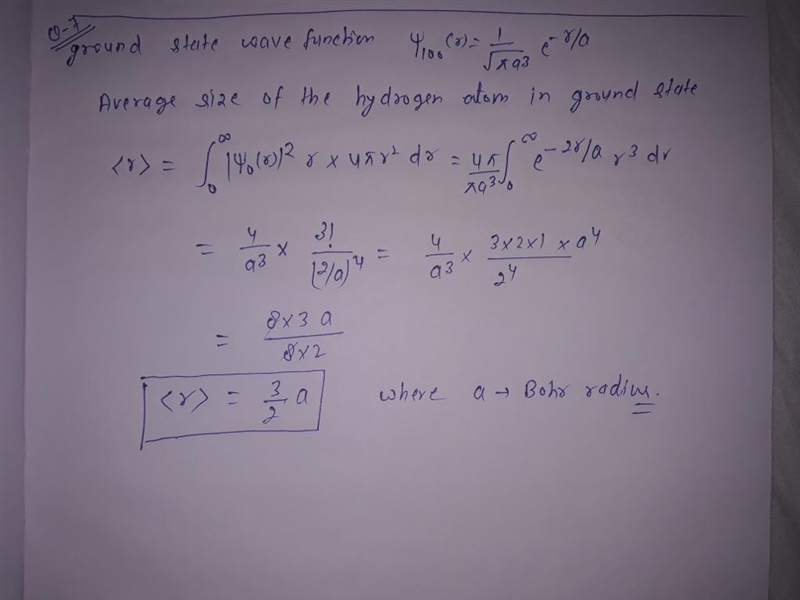 Q-7
ground state wave function ψ₁₀₀(r) = 1/√(πa³) e^(-r/a)
Average size of the hydrogen atom in ground state
<r> = ∫₀^∞ |ψ₀(r)|² r × 4πr² dr = 4π/(πa³) ∫₀^∞ e^(-2r/a) r³ dr
= 4/a³ × 3!/(2/a)⁴ = 4/a³ × (3×2×1 × a⁴)/2⁴
= (8×3 a)/(8×2)
<r> = 3/2 a where a → Bohr radius.